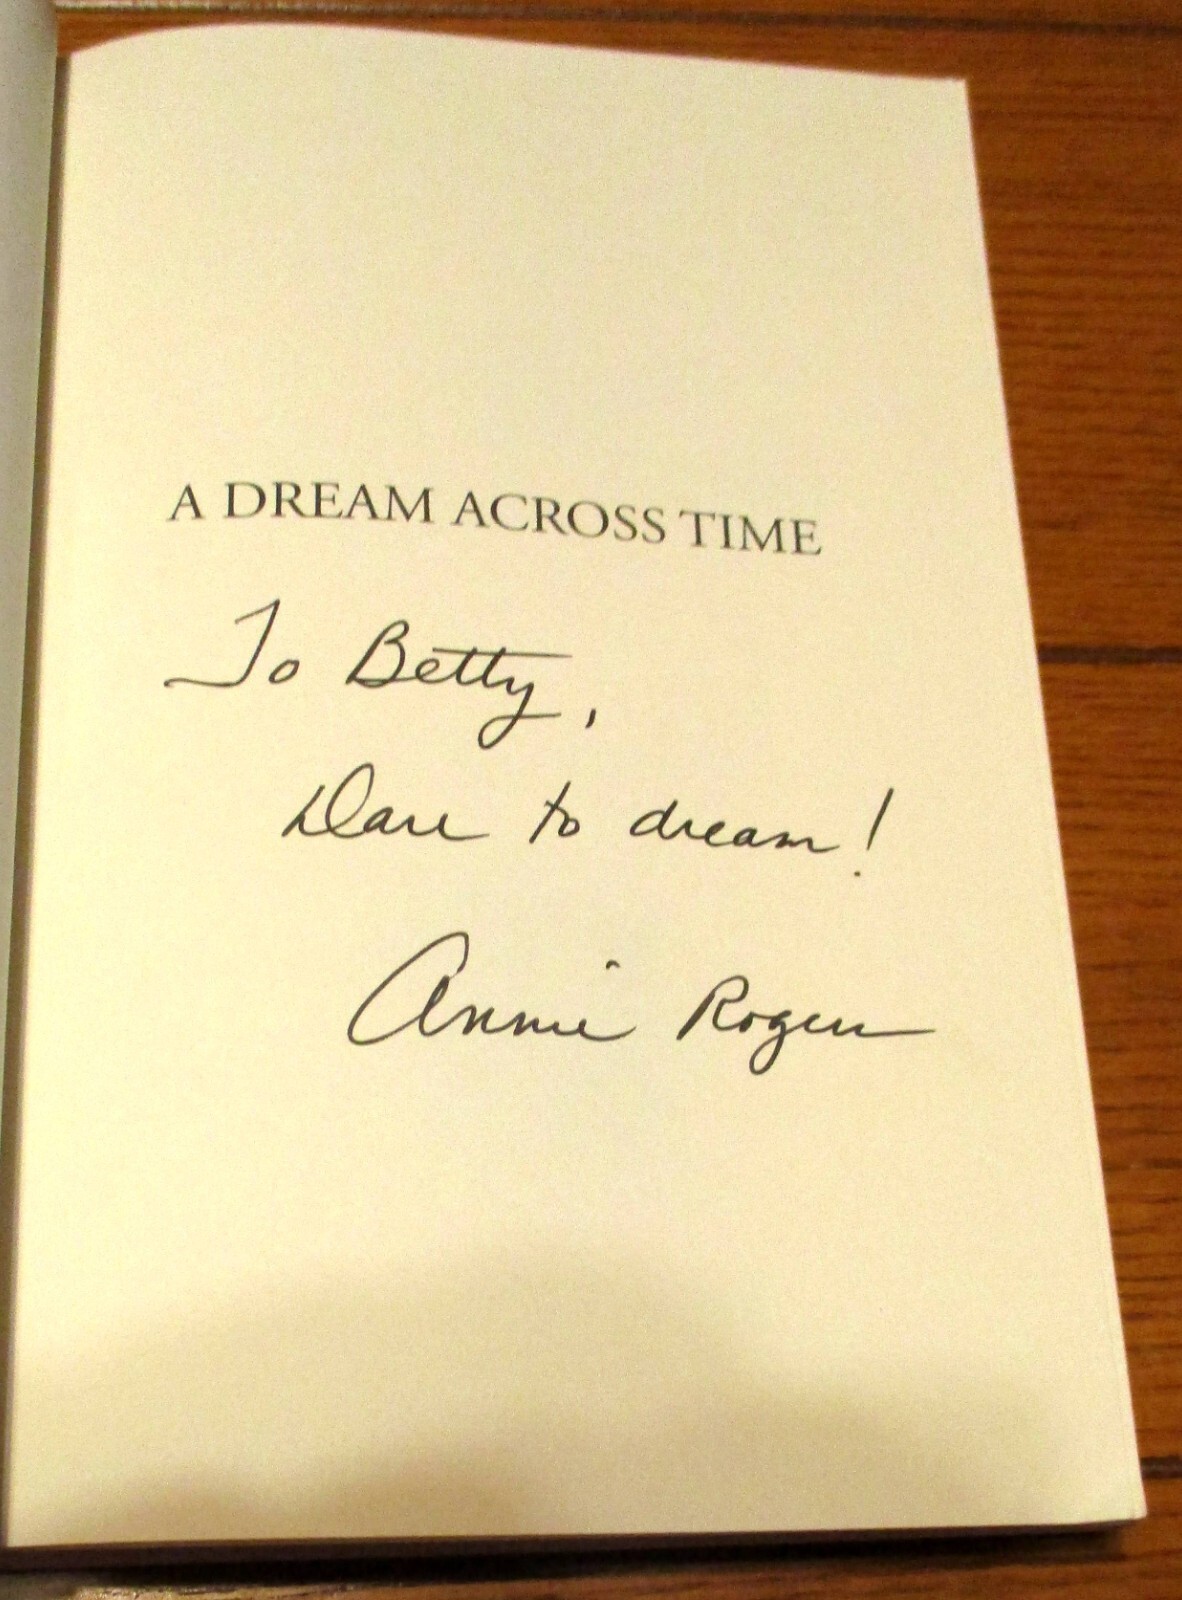 A DREAM ACROSS TIME
To Betty,
Dare to dream!
Annie Rogers